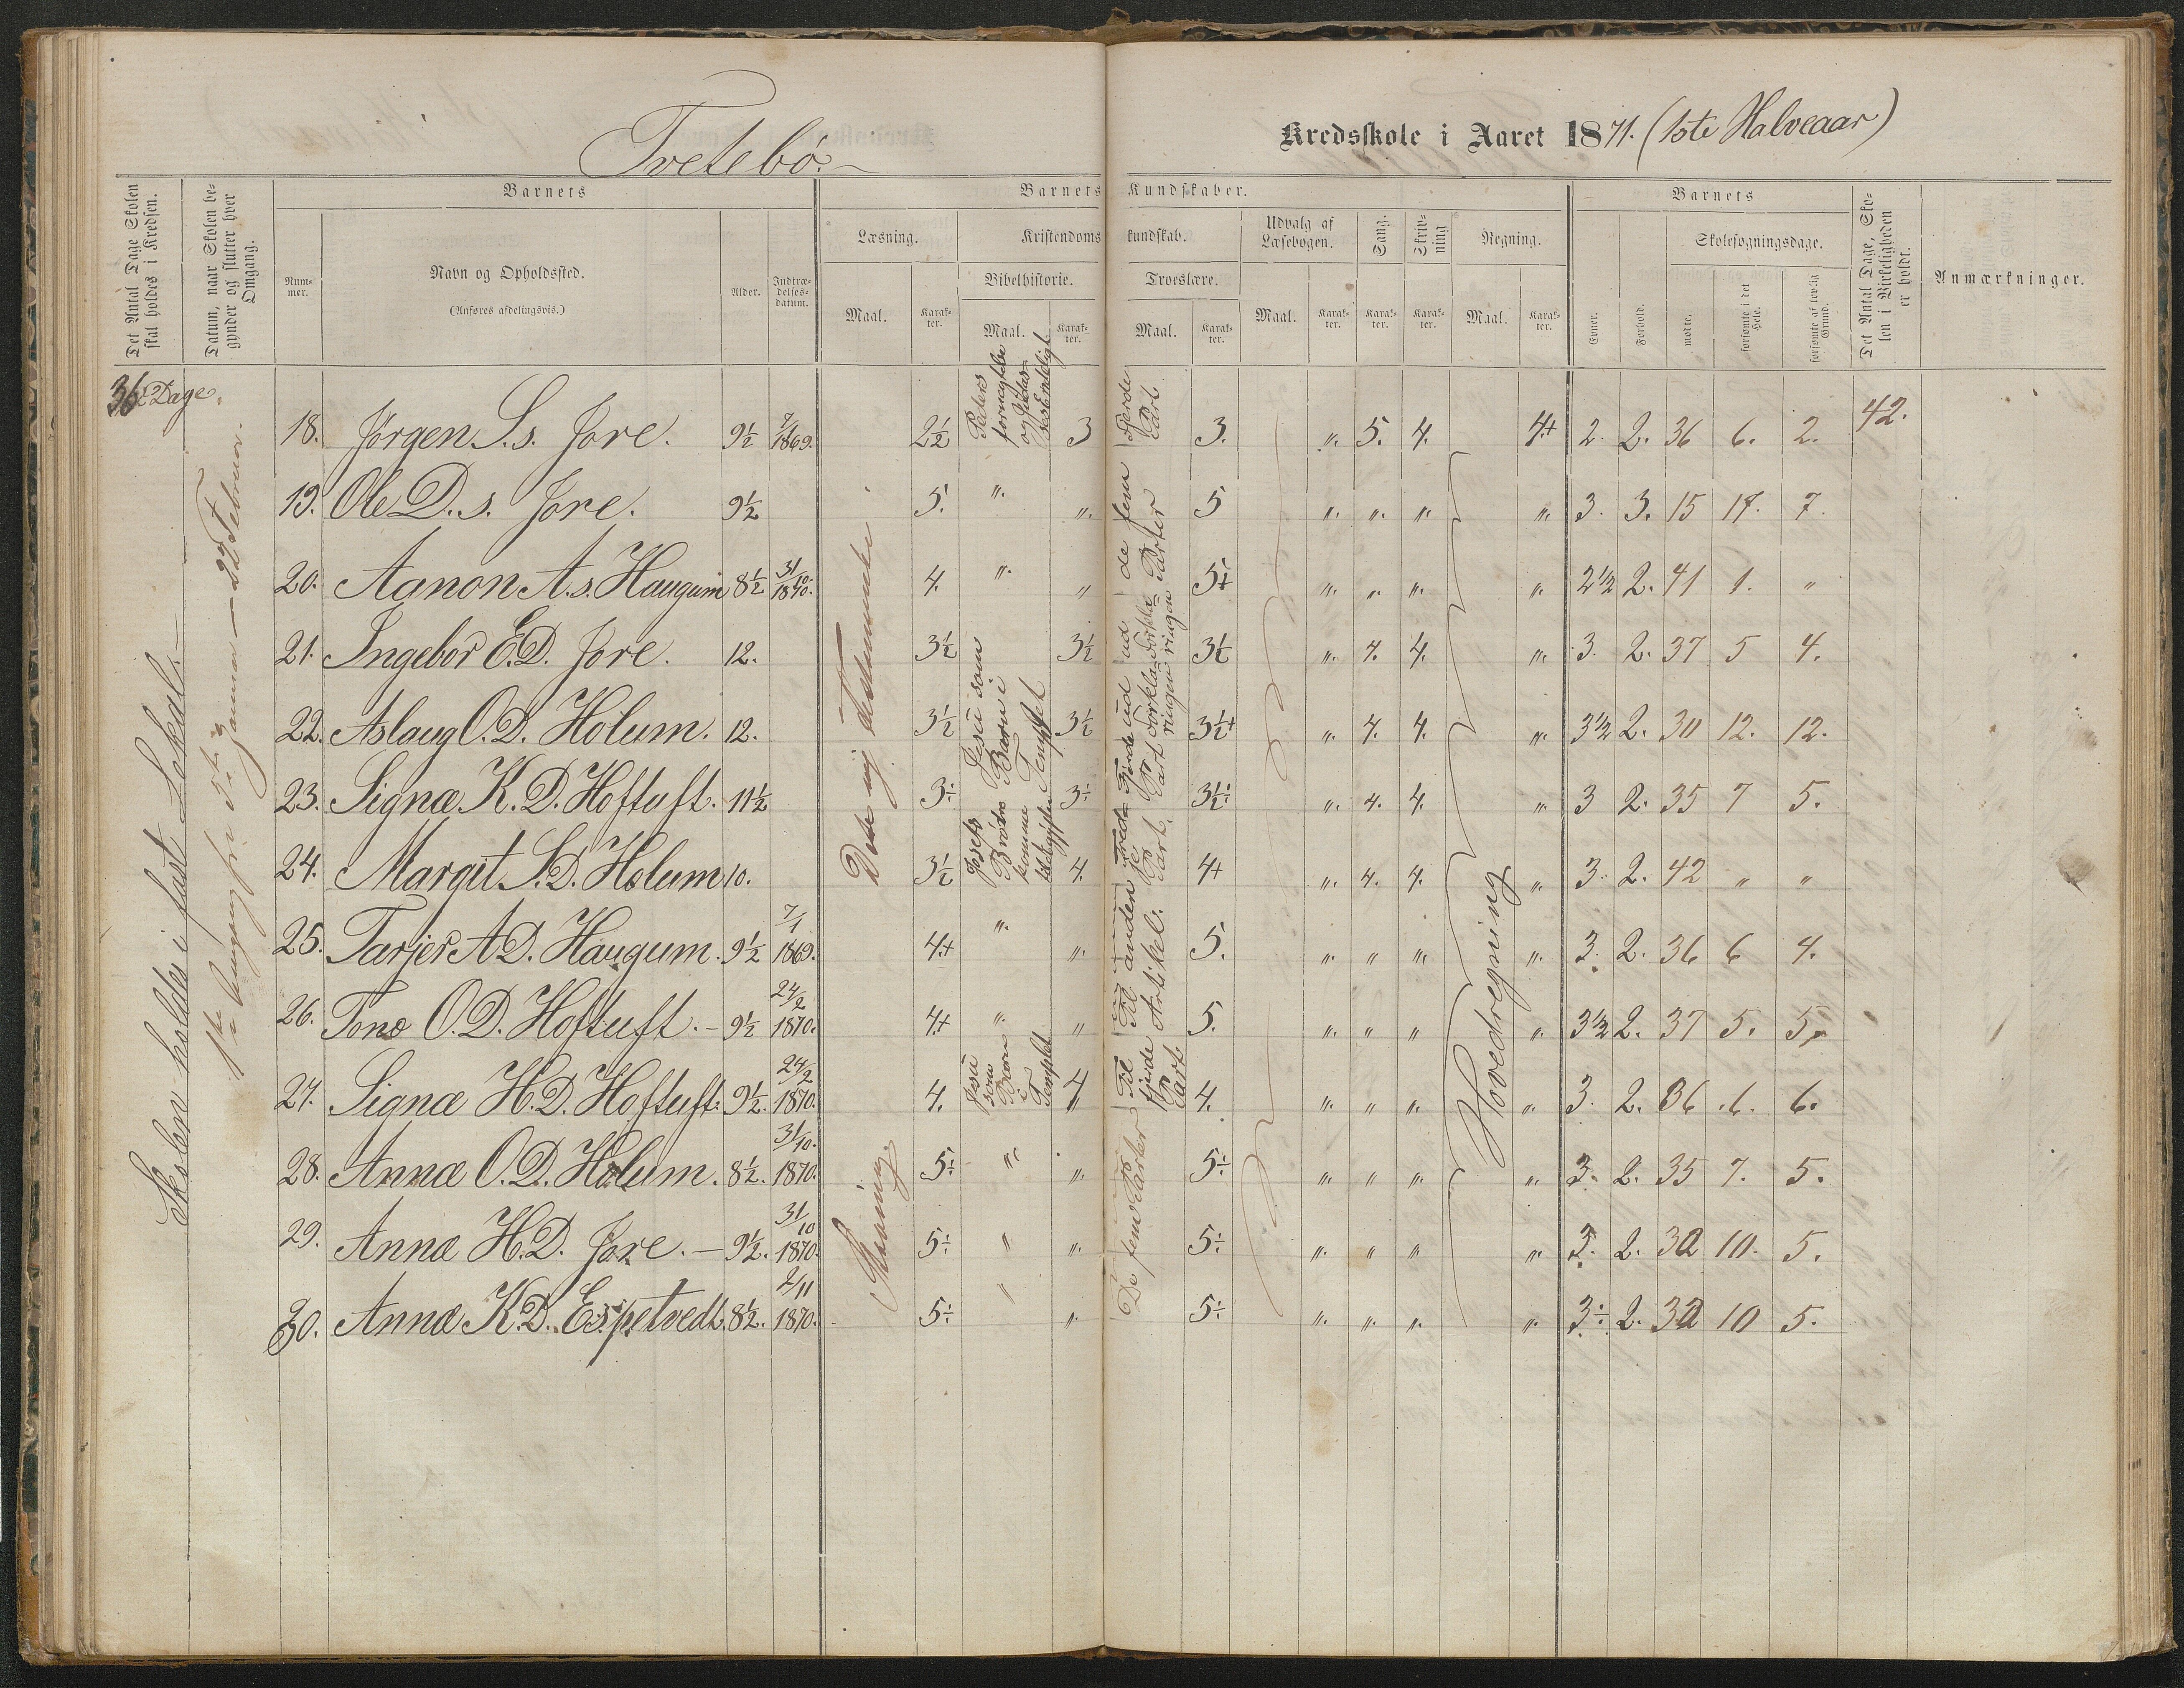 Tvetebø.
Kredsskole i Aaret 1871. (1ste Halveaar)
Det Antal Dage Skolen skal holdes i Kredsen.
Datum, naar Skolen begynder og slutter hver Omgang.
Barnets
Barnets Kundskaber.
Barnets
Det Antal Dage, Skolen i Virkeligheden er holdt.
Anmærkninger.
Nummer.
Navn og Opholdssted.
(Anføres afdelingsvis.)
Alder.
Indtrædelsesdatum.
Læsning.
Kristendomskundskab.
Udvalg af Læsebogen.
Sang.
Skrivning
Regning.
Evner.
Forhold.
Skolesøgningsdage.
Bibelhistorie.
Troeslære.
Maal.
Karakter.
Maal.
Karakter.
Maal.
Karakter.
Maal.
Karakter.
Karakter.
Karakter.
Maal.
Karakter.
mødte.
forsømte i det Hele.
forsømte af lovlig Grund.
36 Dage
Skolen holdes i fast Lokal.
18. Jørgen S.s. Jore. 9½ 7/1 1869. 2½ 3 3. „ 5. 4. 4+ 2. 2. 36 6. 2. 42.
19. Ole D.s. Jore. 9½ 5. „ „ 5 „ „ „ „ 3. 3. 15 17. 7.
20. Aanon A.s. Haugum 8½ 31/10 1870. 4. „ „ 5+ „ „ „ „ 2½ 2. 41 1. „
21. Ingebor E.D. Jore. 12. 3½ 3½ 3½ „ 4. 4. „ 3. 2. 37 5 4.
22. Aslaug O.D. Holum. 12. 3½ 3½ 3½+ „ 4. 4. „ 3½ 2. 30 12. 12.
23. Signæ K.D. Hoftuft. 11½ 3÷ 3÷ 3½÷ „ 4. 4. „ 3 2. 35 7 5.
24. Margit S.D. Holum 10. 3½ 4. 4+ „ 4. 4. „ 3. 2. 42 „ „
25. Tarjer A.D. Haugum. 9½ 7/1 1869. 4+ „ „ 5. „ „ „ „ 3. 2. 36 6 4.
26. Tone O.D. Hoftuft. 9½ 24/2 1870. 4+ „ „ 5. „ „ „ „ 3½ 2. 37 5. 5.
27. Signæ H.D. Hoftuft. 9½. 24/2 1870. 4. 4 4. „ „ „ „ 3. 2. 36 6. 6.
28. Annæ O.D. Holum. 8½. 31/10. 1870. 5÷ „ „ 5÷ „ „ „ „ 3. 2. 35 7. 5.
29. Annæ H.D. Jore. 9½. 31/10 1870. 5÷ „ „ 5÷ „ „ „ „ 3. 2. 32 10. 5.
30. Annæ K.D. Espetvedt. 8½. 2/11 1870. 5÷ „ „ 5÷ „ „ „ „ 3÷ 2. 32 10 5.
Jesu som Barn i Templet
Jesu som Barn i Templet
Hovedregning
De fem Parter